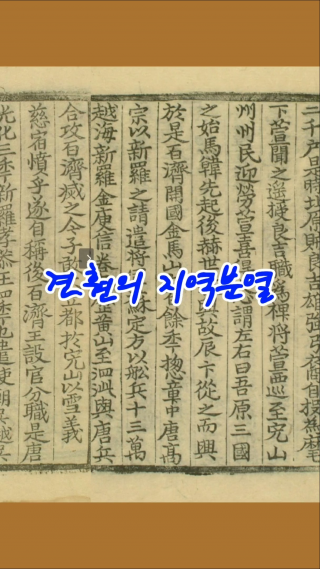 二千戶是時北原賊良吉雄強弓裔自投爲麾
下萱聞之遙授良吉職爲裨將萱西巡至完山
州州民迎勞萱喜謂左右曰吾原三國
之始馬韓先起後赫世故辰卞從之而興
於是百濟開國金馬山餘年摠章中唐高
宗以新羅之請遣將蘇定方以舡兵十三萬
越海新羅金庾信卷黃山至泗沘與唐兵
合攻百濟滅之今予敢都於完山以雪義
慈宿憤乎遂自稱後百濟王設官分職是唐
光化三年新羅孝恭王四年也遣使朝吳越吳
견훤의 지역분열